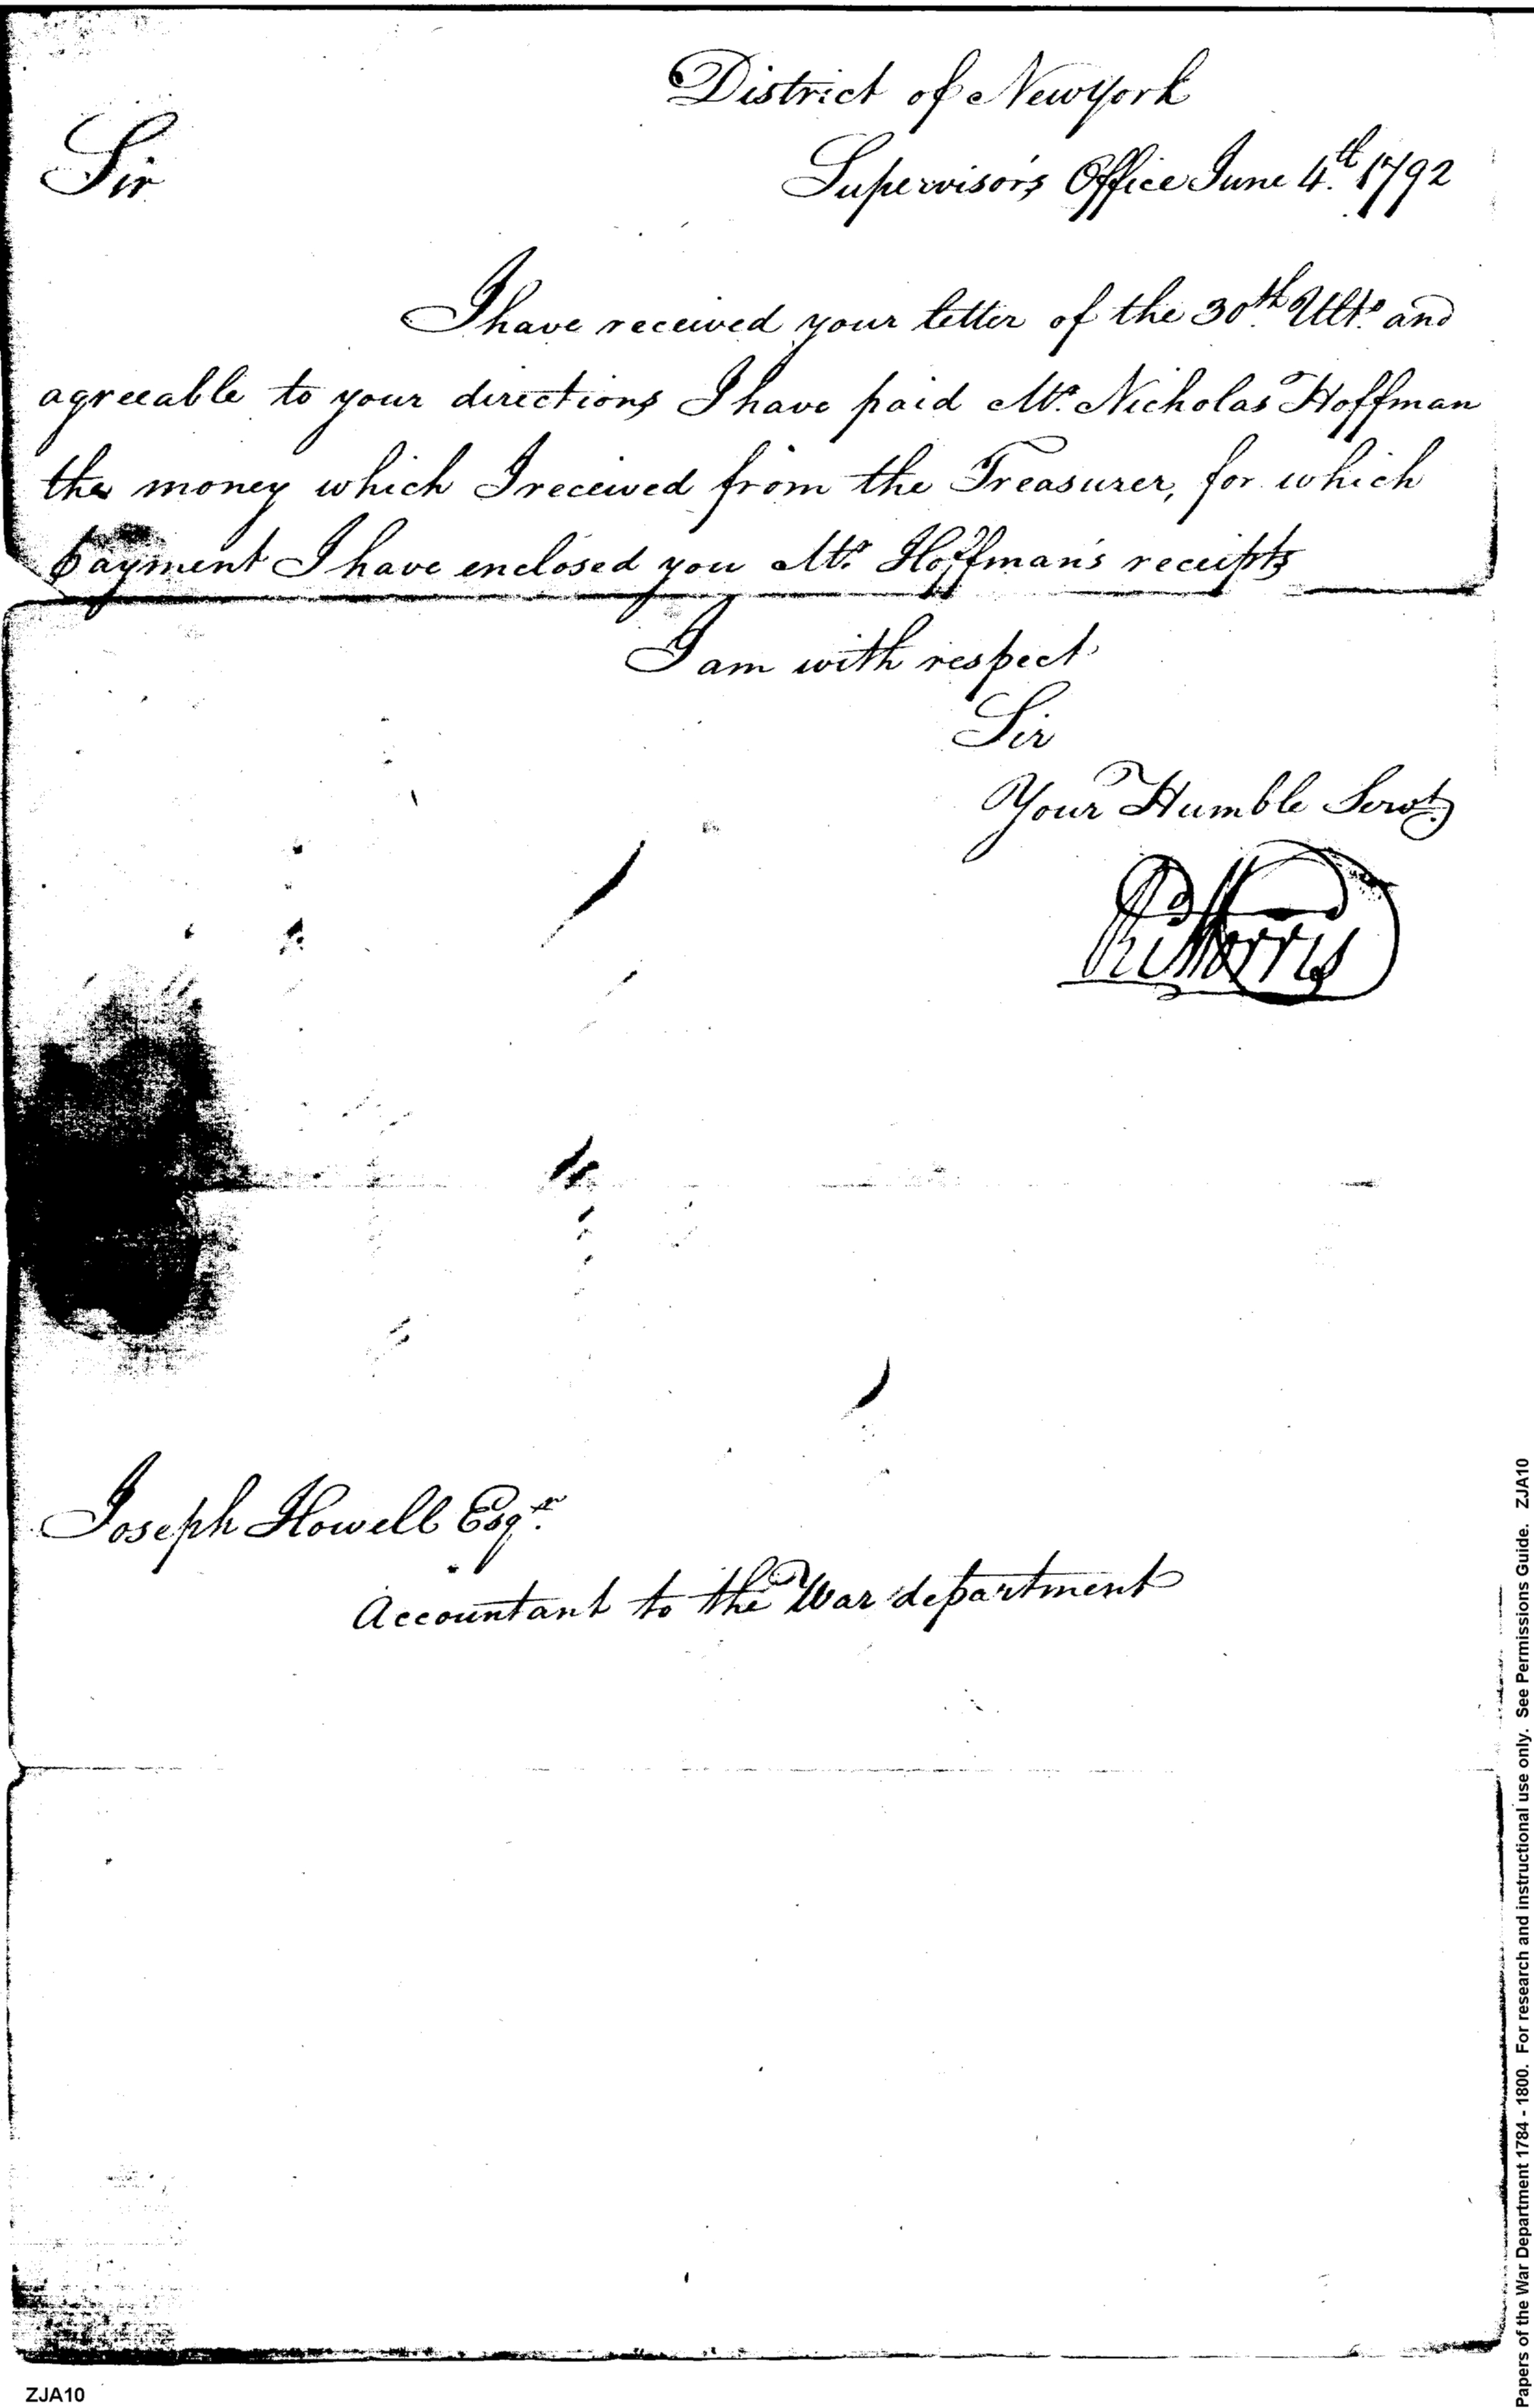 District of NewYork
Sir
Supervisor's Office June 4th. 1792
I have received your letter of the 30th. Ulto. and
agreeable to your directions I have paid Mr. Nicholas Hoffman
the money which I received from the Treasurer, for which
payment I have enclosed you Mr. Hoffman's receipts
I am with respect
Sir
Your Humble Servt.
Ri Morris
Joseph Howell Esqr.
Accountant to the War department
Papers of the War Department 1784 - 1800. For research and instructional use only. See Permissions Guide. ZJA10
ZJA10